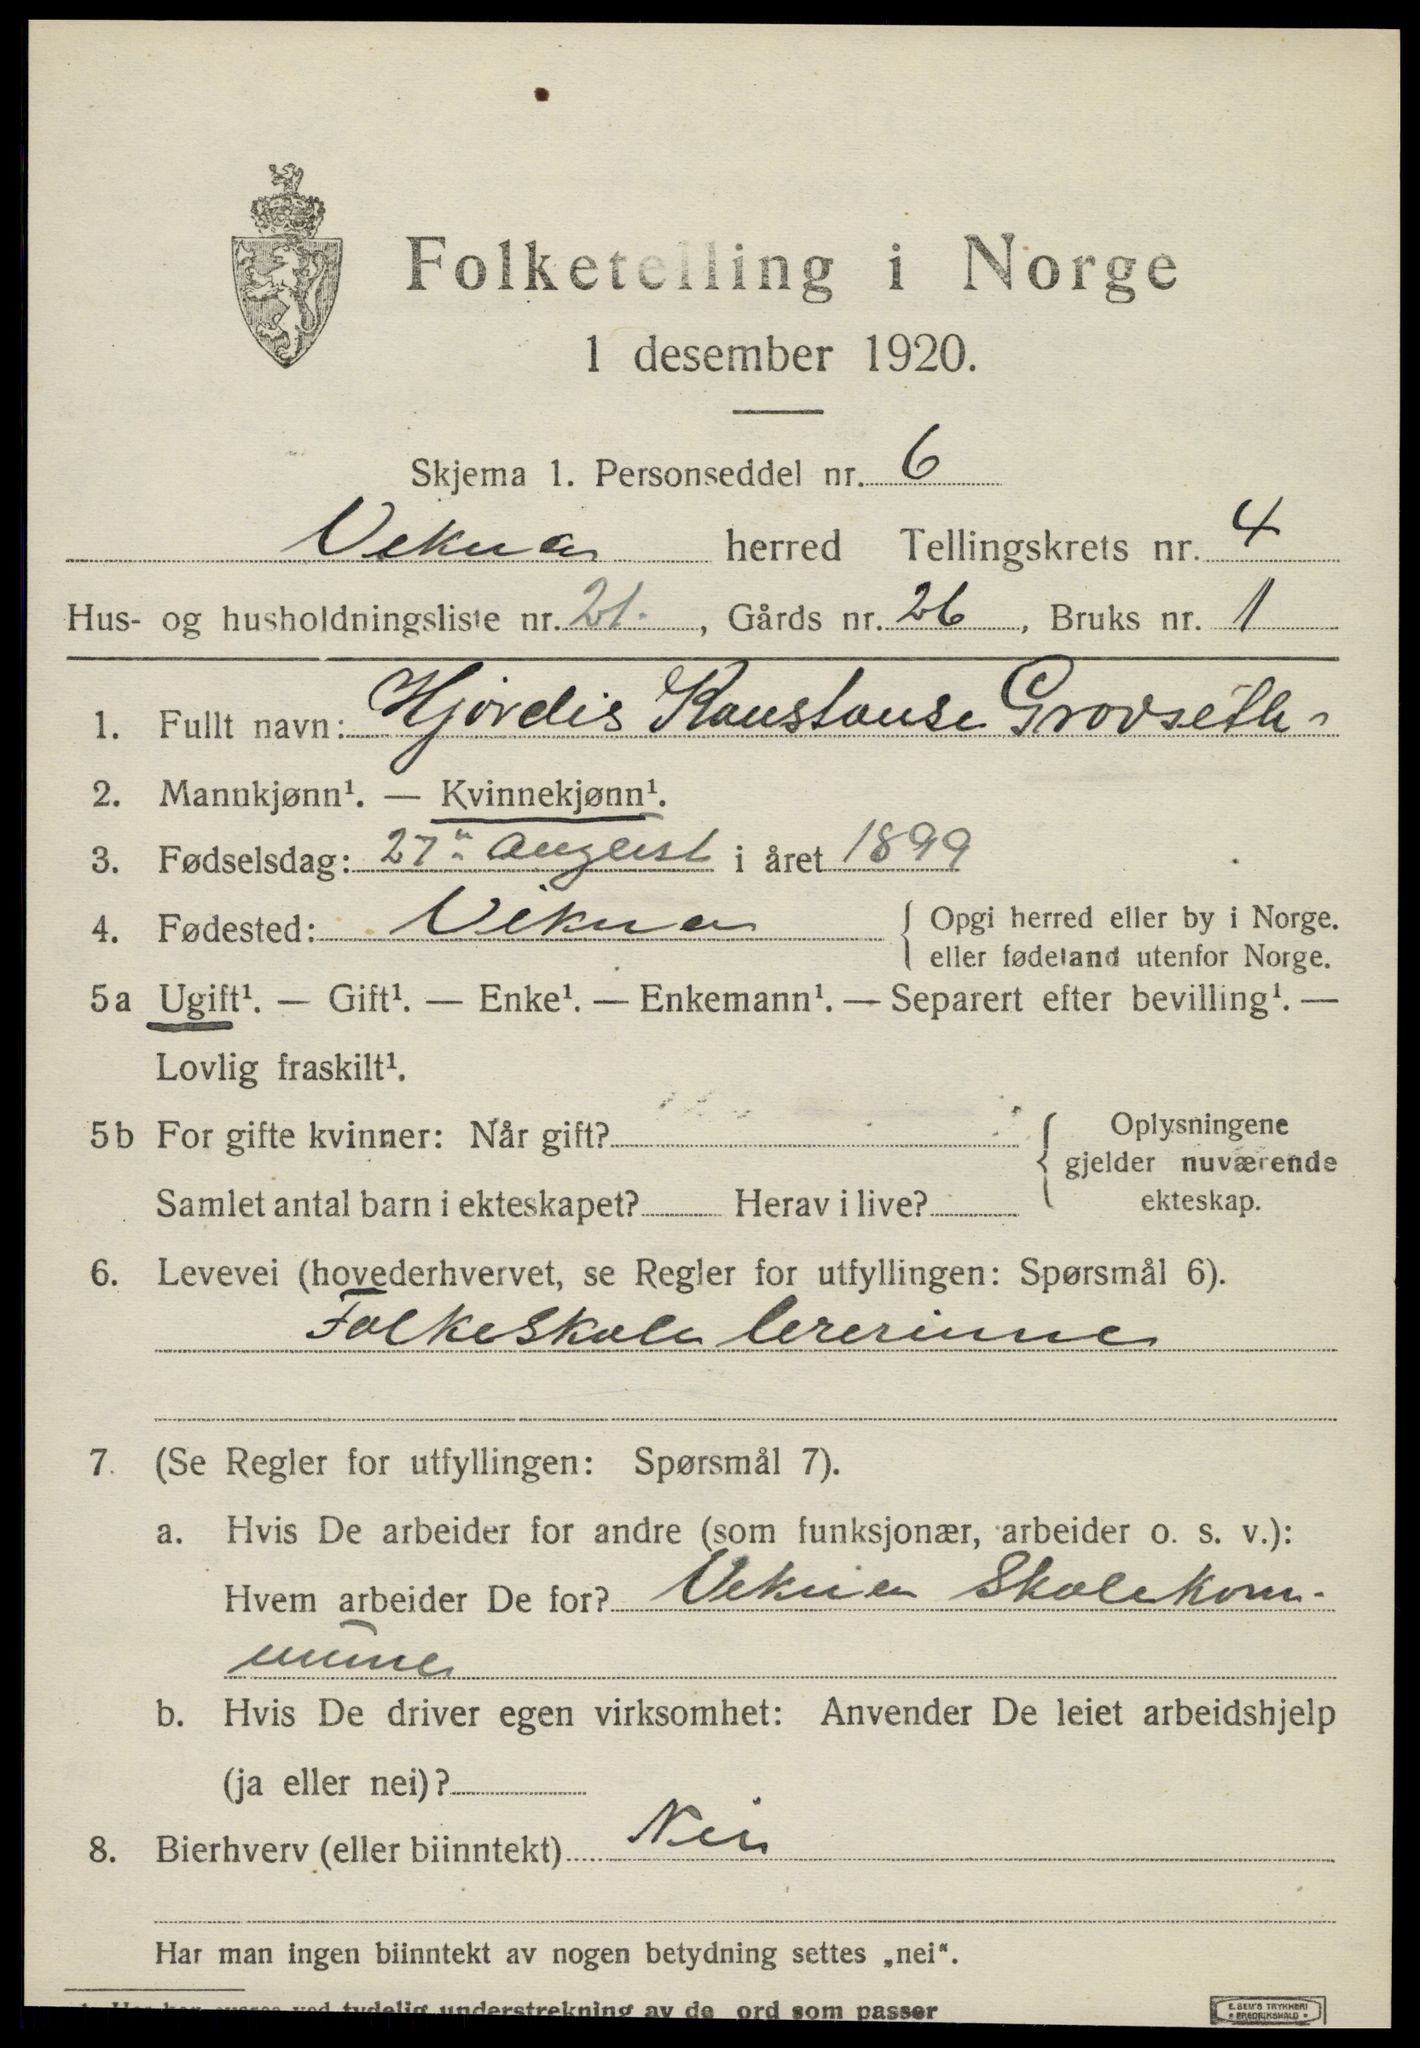 Folketelling i Norge
1 desember 1920.
Skjema 1. Personseddel nr. 6
Vikna herred Tellingskrets nr. 4
Hus- og husholdningsliste nr. 21. , Gårds nr. 26 , Bruks nr. 1
1. Fullt navn: Hjördis Konstanse Grovseth
2. Mannkjønn¹. — Kvinnekjønn¹.
3. Fødselsdag: 27" August i året 1899
4. Fødested: Vikna { Opgi herred eller by i Norge.
eller fødeland utenfor Norge.
5a Ugift¹. — Gift¹. — Enke¹. — Enkemann¹. — Separert efter bevilling¹. —
Lovlig fraskilt¹.
5b For gifte kvinner: Når gift? { Oplysningene
gjelder nuværende
Samlet antal barn i ekteskapet? Herav i live? ekteskap.
6. Levevei (hovederhvervet, se Regler for utfyllingen: Spørsmål 6).
Folkeskole lererinne
7. (Se Regler for utfyllingen: Spørsmål 7).
a. Hvis De arbeider for andre (som funksjonær, arbeider o. s. v.):
Hvem arbeider De for? Vikna Skolekom-
mune
b. Hvis De driver egen virksomhet: Anvender De leiet arbeidshjelp
(ja eller nei)?
8. Bierhverv (eller biinntekt) Nei
Har man ingen biinntekt av nogen betydning settes „nei“.
¹ Her kan svares ved tydelig understrekning av de ord som passer
E. SEM'S TRYKKERI
FREDRIKSHALD